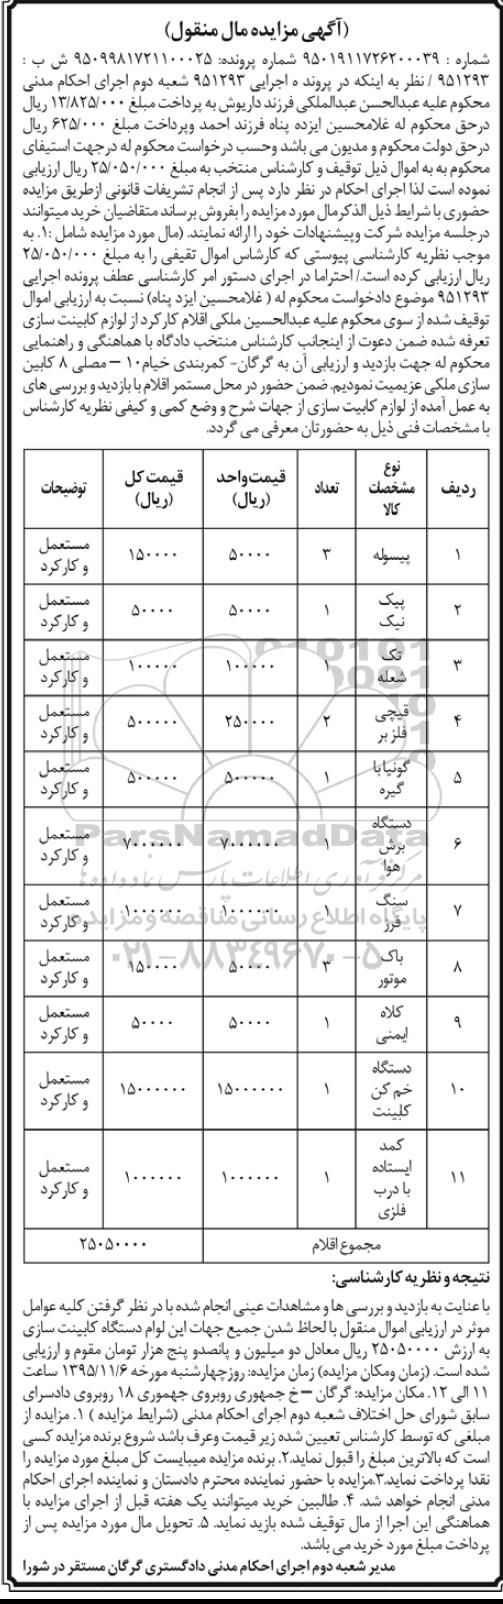 (آگهی مزایده مال منقول)
شماره : ۹۵۰۱۹۱۱۷۲۶۲۰۰۰۳۹ شماره پرونده: ۹۵۰۹۹۸۱۷۲۱۱۰۰۰۲۵ ش ب :
۹۵۱۲۹۳ / نظر به اینکه در پروند ه اجرایی ۹۵۱۲۹۳ شعبه دوم اجرای احکام مدنی
محکوم علیه عبدالحسن عبدالملکی فرزند داریوش به پرداخت مبلغ ۱۳/۸۲۵/۰۰۰ ریال
درحق محکوم له غلامحسین ایزده پناه فرزند احمد وپرداخت مبلغ ۶۲۵/۰۰۰ ریال
درحق دولت محکوم و مدیون می باشد وحسب درخواست محکوم له درجهت استیفای
محکوم به به اموال ذیل توقیف و کارشناس منتخب به مبلغ ۲۵/۰۵۰/۰۰۰ ریال ارزیابی
نموده است لذا اجرای احکام در نظر دارد پس از انجام تشریفات قانونی ازطریق مزایده
حضوری با شرایط ذیل الذکرمال مورد مزایده را بفروش برساند متقاضیان خرید میتوانند
درجلسه مزایده شرکت وپیشنهادات خود را ارائه نمایند. (مال مورد مزایده شامل :۱. به
موجب نظریه کارشناسی پیوستی که کارشاس اموال تقیفی را به مبلغ ۲۵/۰۵۰/۰۰۰
ریال ارزیابی کرده است./ احتراما در اجرای دستور امر کارشناسی عطف پرونده اجرایی
۹۵۱۲۹۳ موضوع دادخواست محکوم له ( غلامحسین ایزد پناه) نسبت به ارزیابی اموال
توقیف شده از سوی محکوم علیه عبدالحسین ملکی اقلام کارکرد از لوازم کابینت سازی
تعرفه شده ضمن دعوت از اینجانب کارشناس منتخب دادگاه با هماهنگی و راهنمایی
محکوم له جهت بازدید و ارزیابی آن به گرگان- کمربندی خیام۱۰ – مصلی ۸ کابین
سازی ملکی عزیمیت نمودیم. ضمن حضور در محل مستمر اقلام با بازدید و بررسی های
به عمل آمده از لوازم کابیت سازی از جهات شرح و وضع کمی و کیفی نظریه کارشناس
با مشخصات فنی ذیل به حضورتان معرفی می گردد.
ردیف نوع مشخصات کالا تعداد قیمت واحد (ریال) قیمت کل (ریال) توضیحات
۱ پیسوله ۳ ۵۰۰۰۰ ۱۵۰۰۰۰ مستعمل و کارکرد
۲ پیک نیک ۱ ۵۰۰۰۰ ۵۰۰۰۰ مستعمل و کارکرد
۳ تک شعله ۱ ۱۰۰۰۰۰ ۱۰۰۰۰۰ مستعمل و کارکرد
۴ قیچی فلز بر ۲ ۲۵۰۰۰۰ ۵۰۰۰۰۰ مستعمل و کارکرد
۵ گونیا با گیره ۱ ۵۰۰۰۰۰ ۵۰۰۰۰۰ مستعمل و کارکرد
۶ دستگاه برش هوا ۱ ۷۰۰۰۰۰۰ ۷۰۰۰۰۰۰ مستعمل و کارکرد
۷ سنگ فرز ۱ ۱۰۰۰۰۰۰ ۱۰۰۰۰۰۰ مستعمل و کارکرد
۸ باک موتور ۳ ۵۰۰۰۰ ۱۵۰۰۰۰ مستعمل و کارکرد
۹ کلاه ایمنی ۱ ۵۰۰۰۰ ۵۰۰۰۰ مستعمل و کارکرد
۱۰ دستگاه خم کن کلبینت ۱ ۱۵۰۰۰۰۰۰ ۱۵۰۰۰۰۰۰ مستعمل و کارکرد
۱۱ کمد ایستاده با درب فلزی ۱ ۱۰۰۰۰۰۰ ۱۰۰۰۰۰۰ مستعمل و کارکرد
مجموع اقلام ۲۵۰۵۰۰۰۰
ParsNamadData
مرکز فرآوری اطلاعات پارس نماد داده ها
پایگاه اطلاع رسانی مناقصه و مزایده
۰۲۱-۸۸۳۴۹۶۷۰-۵
نتیجه و نظریه کارشناسی:
با عنایت به بازدید و بررسی ها و مشاهدات عینی انجام شده با در نظر گرفتن کلیه عوامل
موثر در ارزیابی اموال منقول با لحاظ شدن جمیع جهات این لوام دستگاه کابینت سازی
به ارزش ۲۵۰۵۰۰۰۰ ریال معادل دو میلیون و پانصدو پنج هزار تومان مقوم و ارزیابی
شده است. (زمان ومکان مزایده) زمان مزایده: روزچهارشنبه مورخه ۱۳۹۵/۱۱/۶ ساعت
۱۱ الی ۱۲. مکان مزایده: گرگان –خ جمهوری روبروی جهموری ۱۸ روبروی دادسرای
سابق شورای حل اختلاف شعبه دوم اجرای احکام مدنی (شرایط مزایده ) ۱. مزایده از
مبلغی که توسط کارشناس تعیین شده زیر قیمت وعرف باشد شروع برنده مزایده کسی
است که بالاترین مبلغ را قبول نماید.۲. برنده مزایده میبایست کل مبلغ مورد مزایده را
نقدا پرداخت نماید.۳.مزایده با حضور نماینده محترم دادستان و نماینده اجرای احکام
مدنی انجام خواهد شد. ۴. طالبین خرید میتوانند یک هفته قبل از اجرای مزایده با
هماهنگی این اجرا از مال توقیف شده بازید نماید. ۵. تحویل مال مورد مزایده پس از
پرداخت مبلغ مورد خرید می باشد.
مدیر شعبه دوم اجرای احکام مدنی دادگستری گرگان مستقر در شورا